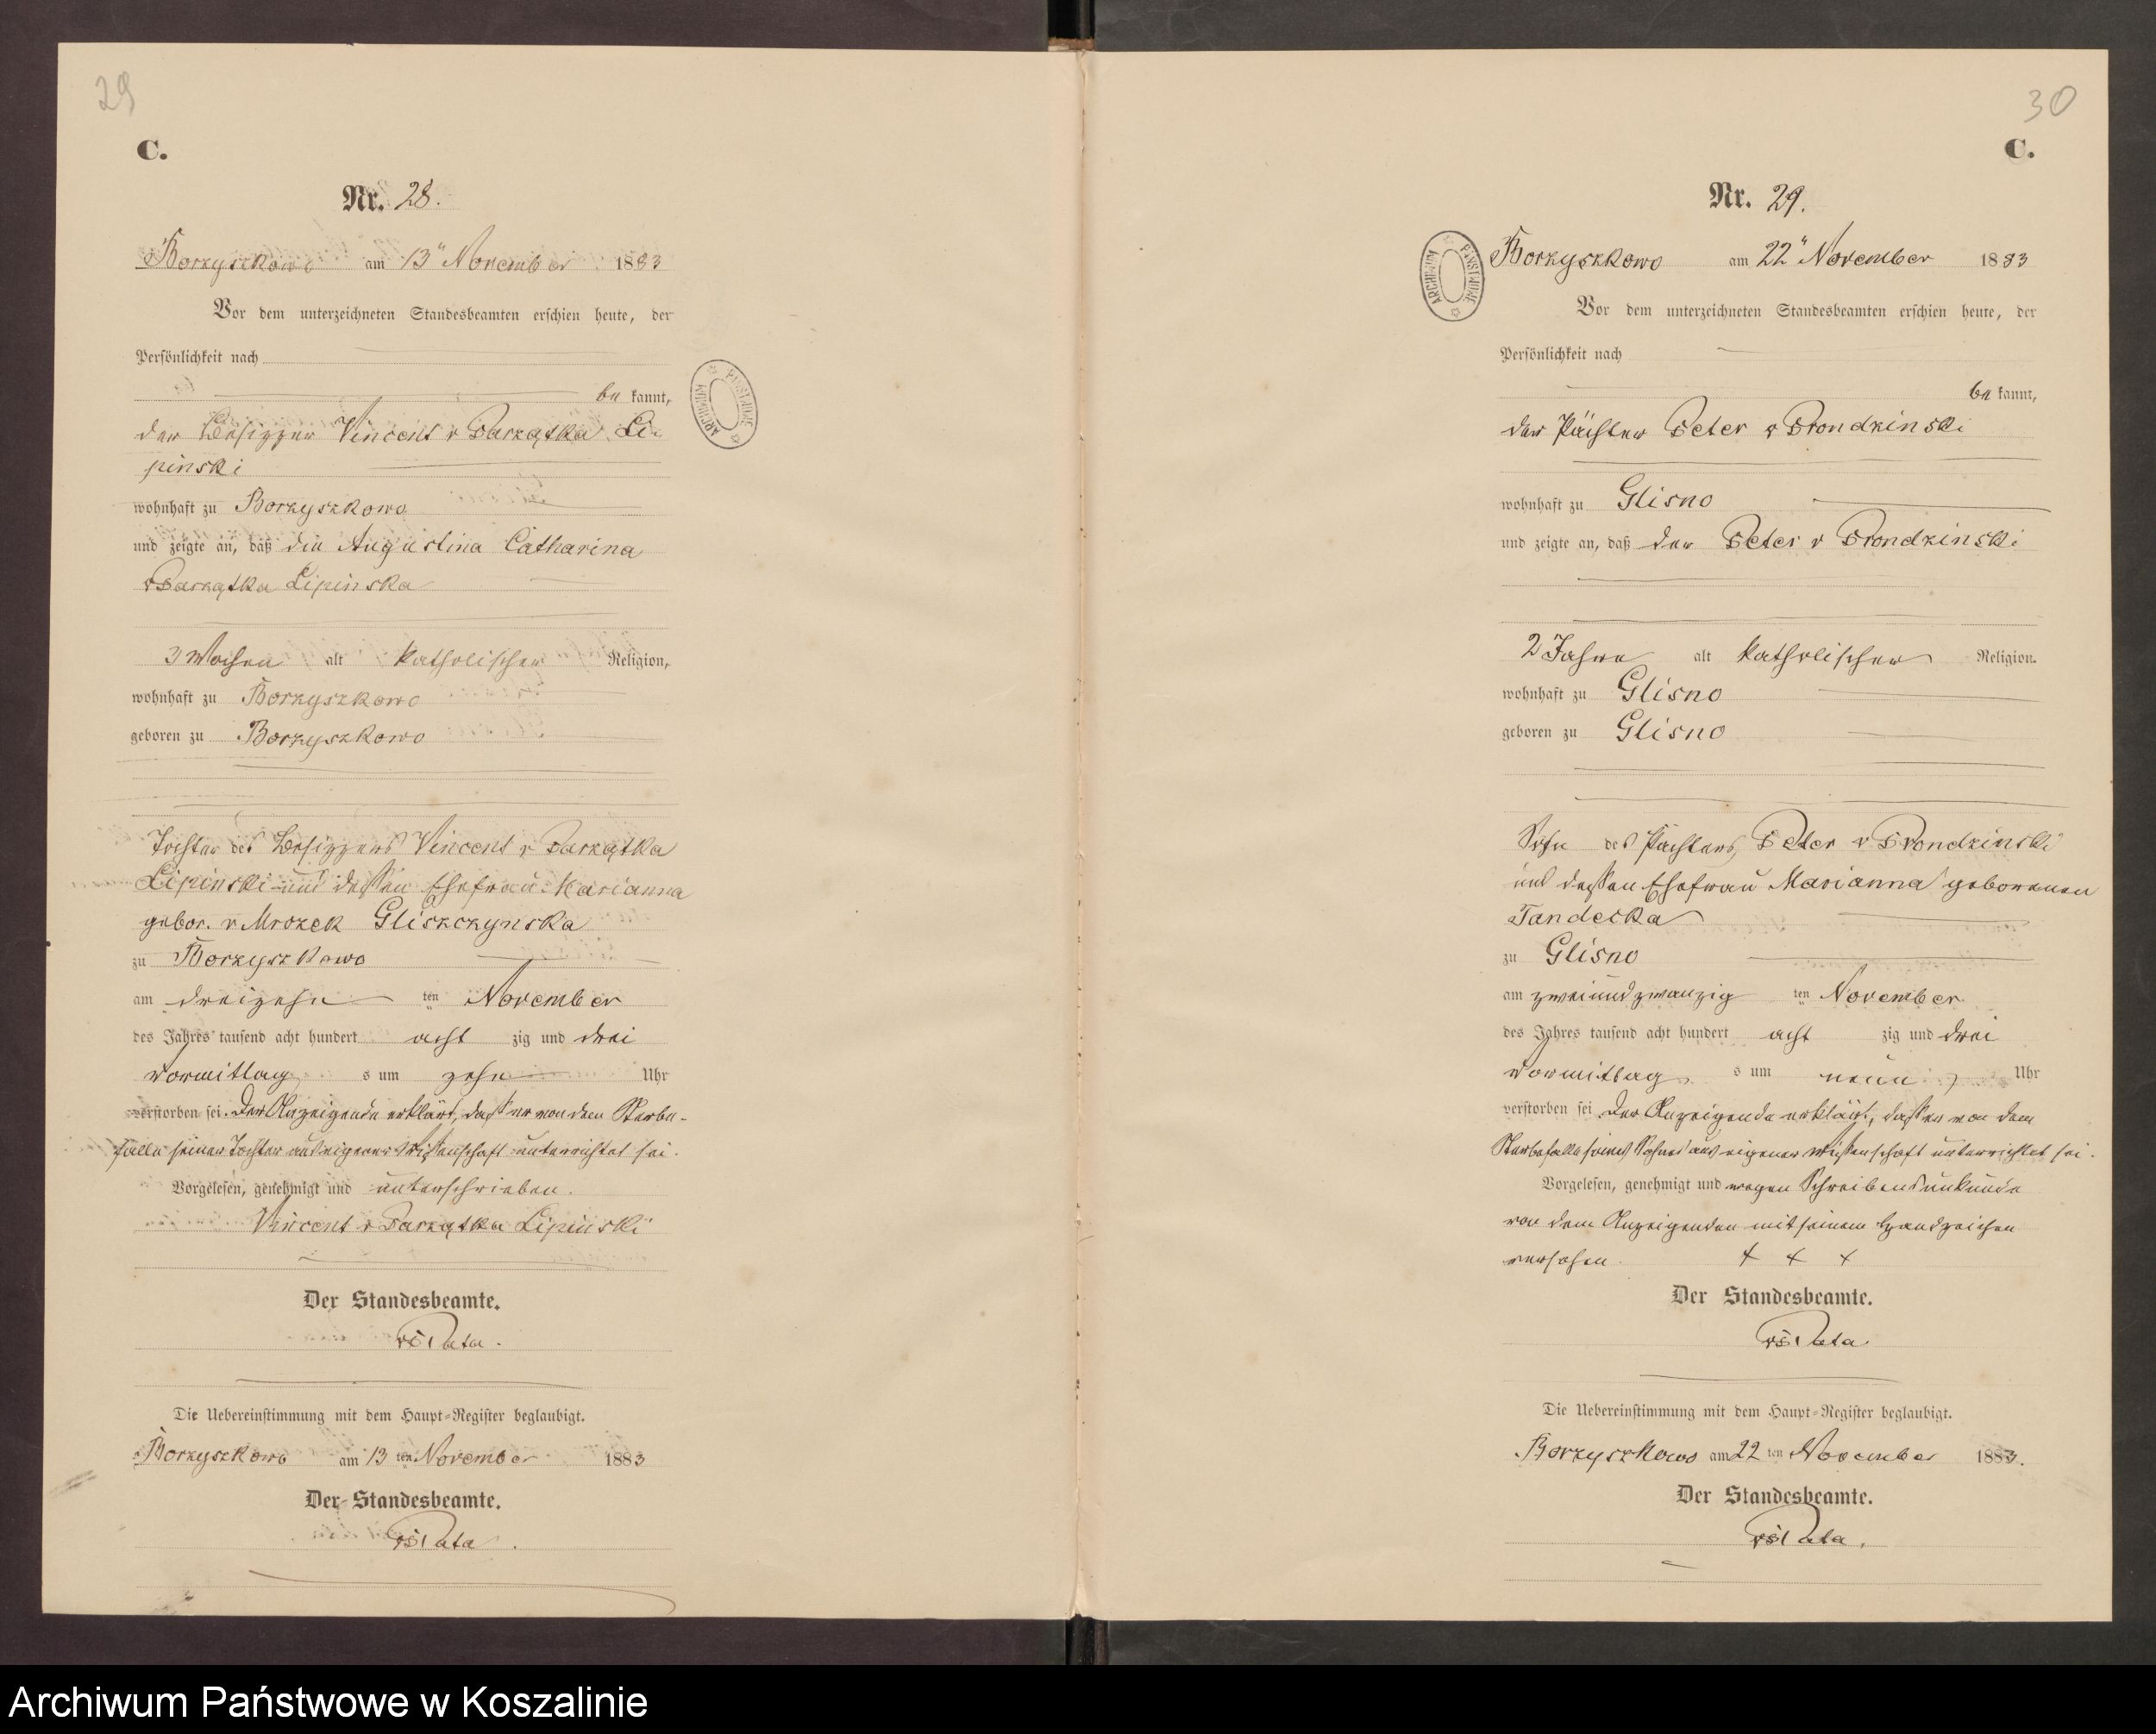 29
C.
Nr. 28.
Borzyszkowo am 13ⁿ November 1883
Vor dem unterzeichneten Standesbeamten erschien heute, der
Persönlichkeit nach
be kannt,
der Besitzer Vincent v Parzątka Li-
pinski
wohnhaft zu Borzyszkowo
und zeigte an, daß die Augustina Catharina
v Parzątka Lipinska
3 Wochen alt katholischer Religion,
wohnhaft zu Borzyszkowo
geboren zu Borzyszkowo
Tochter des Besitzers Vincent v Parzątka
Lipinski und dessen Ehefrau Marianna
gebor. v Mrozek Gliszczynska
zu Borzyszkowo
am dreizehn ten November
des Jahres tausend acht hundert acht zig und drei
Vormittag s um zehn Uhr
verstorben sei. Der Anzeigende erklärt, daß er von dem Sterbe-
falle seiner Tochter aus eigener Wissenschaft unterrichtet sei.
Vorgelesen, genehmigt und unterschrieben.
Vincent v Parzątka Lipinski
Der Standesbeamte.
Die Uebereinstimmung mit dem Haupt-Register beglaubigt.
Borzyszkowo am 13 ten November 1883
Der Standesbeamte.
ARCHIWUM PAŃSTWOWE
30
C.
Nr. 29.
Borzyszkowo am 22ⁿ November 1883
Vor dem unterzeichneten Standesbeamten erschien heute, der
Persönlichkeit nach
be kannt,
der Pächter Peter v Prondzinski
wohnhaft zu Glisno
und zeigte an, daß der Peter v Prondzinski
2 Jahre alt katholischer Religion.
wohnhaft zu Glisno
geboren zu Glisno
Sohn des Pächters Peter v Prondzinski
und dessen Ehefrau Marianna geborenen
Tandecka
zu Glisno
am zweiundzwanzig ten November
des Jahres tausend acht hundert acht zig und drei
Vormittag s um neun Uhr
verstorben sei. Der Anzeigende erklärt, dass er von dem
Sterbefalle seines Sohnes aus eigener Wissenschaft unterrichtet sei.
Vorgelesen, genehmigt und wegen Schreibensunkunde
von dem Anzeigenden mit seinem Handzeichen
versehen. + + +
Der Standesbeamte.
Die Uebereinstimmung mit dem Haupt-Register beglaubigt.
Borzyszkowo am 22 ten November 1883.
Der Standesbeamte.
ARCHIWUM PAŃSTWOWE
Archiwum Państwowe w Koszalinie